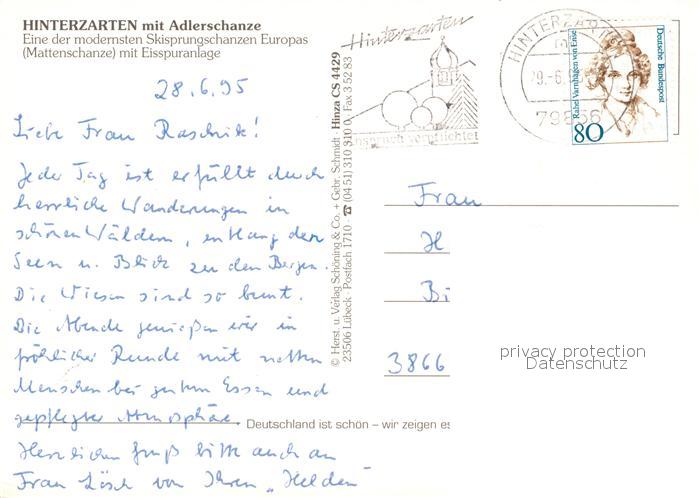 HINTERZARTEN mit Adlerschanze
Eine der modernsten Skisprungschanzen Europas
(Mattenschanze) mit Eisspuranlage
28.6.95
Liebe Frau Raschnik!
Jeder Tag ist erfüllt durch
herrliche Wanderungen in
schönen Wäldern, entlang der
Seen u. Blick zu den Bergen.
Die Wiesen sind so bunt.
Die Abende genießen wir in
fröhlicher Runde mit netten
Menschen bei gutem Essen und
gepflegter Atmosphäre.
Herzlichen Gruß bitte auch an
Frau Lösch von Ihren „Helden"
© Herst. u. Verlag Schöning & Co. + Gebr. Schmidt
23506 Lübeck · Postfach 1710 · ☎ (04 51) 310 310
Hinza CS 4429
Fax 3 52 83
Hinterzarten
HINTERZARTEN
29.-6.
79856
Rahel Varnhagen von Ense
Deutsche Bundespost
80
Frau
H
Bi
3866
privacy protection
Datenschutz
Deutschland ist schön – wir zeigen es